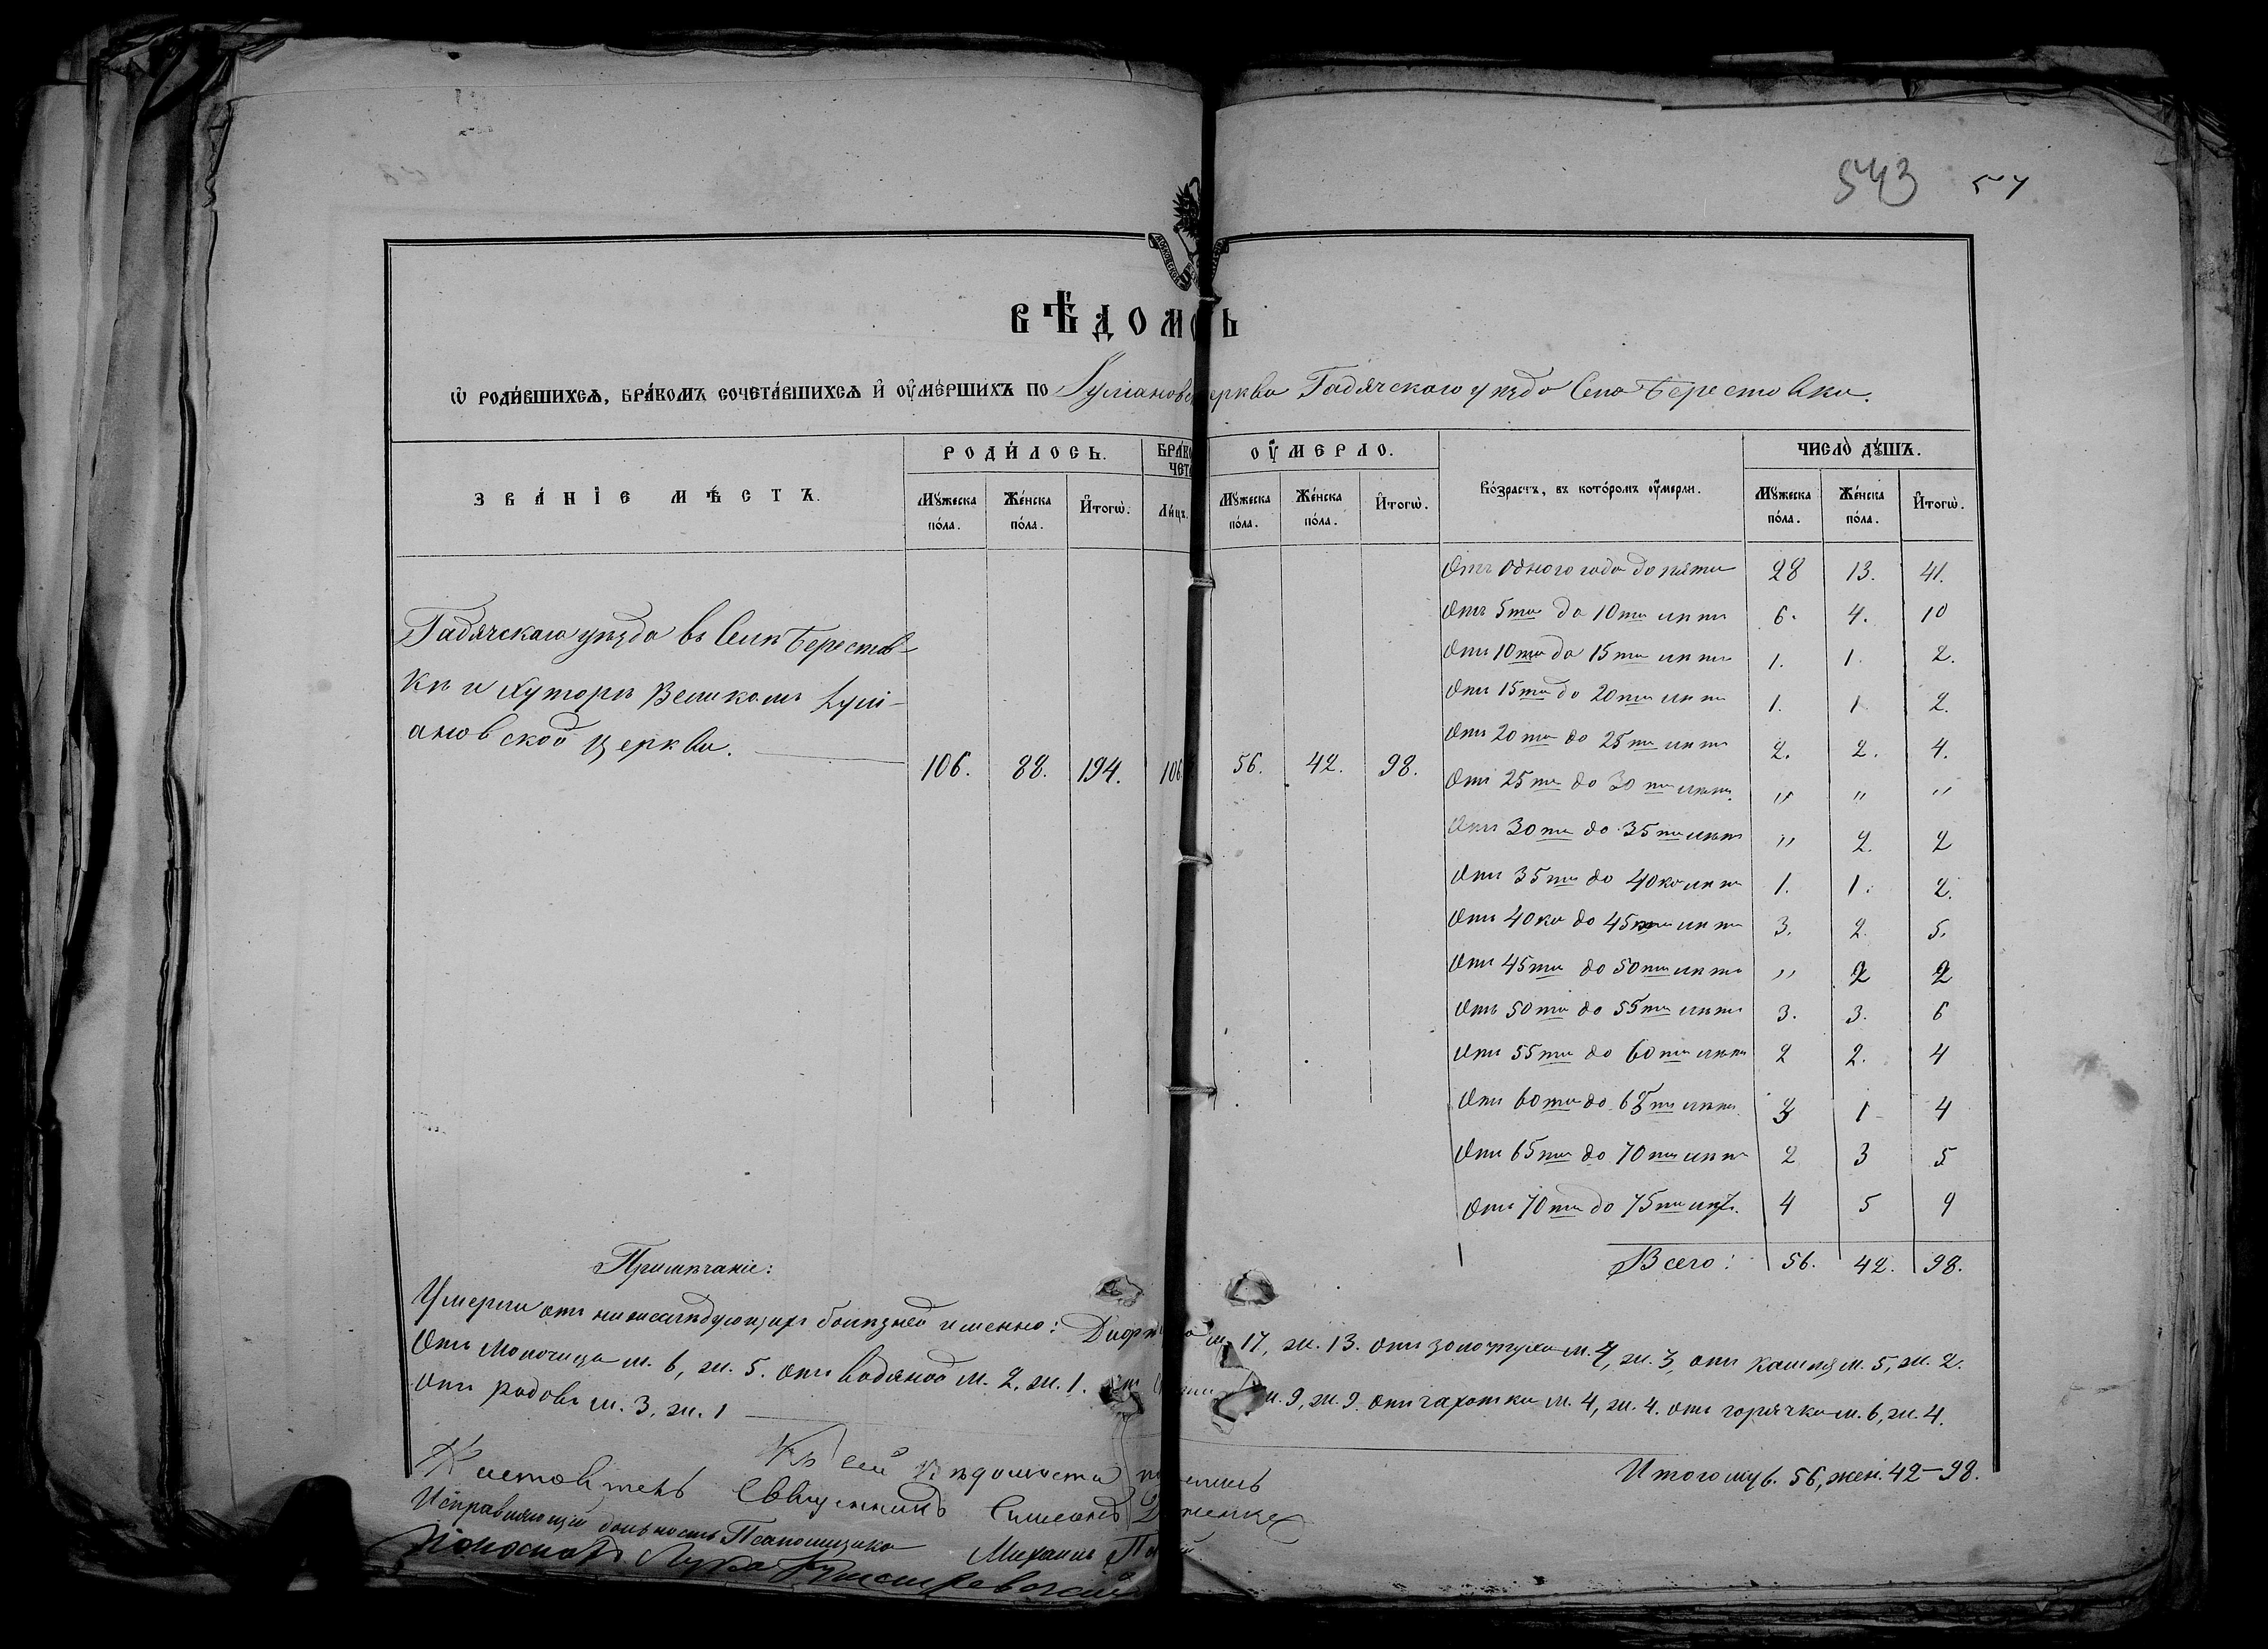 543 54
ВѢДОМОСТЬ
Ѡ РОДИ́ВШИХСѦ, БРА́КОМЪ СОЧЕТА́ВШИХСѦ И҆ ОУ҆МЕ́РШИХЪ ПО Гадячскаго уѣзда Села Берестовки.
ЗВА́НІЕ МѢ́СТЪ.
РОДИ́ЛОСЬ.
Мꙋ́жеска по́ла.
Же́нска по́ла.
И҆тогѡ̀.
Ли́цъ.
ОУ҆МЕРЛО.
Мꙋ́жеска по́ла.
Же́нска по́ла.
И҆тогѡ̀.
Во́зрастъ, въ кото́ромъ оу҆мерли.
ЧИСЛО̀ ДꙊ́ШЪ.
Мꙋ́жеска по́ла.
Же́нска по́ла.
И҆тогѡ̀.
Гадячскаго уѣзда въ Селѣ Берестов-
кѣ и Хуторѣ Великомъ
ановской Церкви.
106. 88. 194. 106 56. 42. 98.
Отъ одного года до пяти 28 13. 41.
Отъ 5ти до 10ти лѣтъ 6. 4. 10
Отъ 10ти до 15ти лѣтъ 1. 1. 2.
Отъ 15ти до 20ти лѣтъ 1. 1 2.
Отъ 20ти до 25ти лѣтъ 2. 2. 4.
Отъ 25ти до 30ти лѣтъ. " " "
Отъ 30ти до 35ти лѣтъ " 2. 2
Отъ 35ти до 40ка лѣтъ 1. 1. 2.
Отъ 40ка до 45ти лѣтъ 3. 2. 5.
Отъ 45ти до 50ти лѣтъ " 2 2
Отъ 50ти до 55ти лѣтъ 3. 3. 6
Отъ 55ти до 60ти лѣтъ 2 2. 4
Отъ 60ти до 65ти лѣтъ 3 1 4
Отъ 65ти до 70ти лѣтъ 2 3 5
Отъ 70ти до 75ти лѣтъ. 4 5 9
Всего: 56. 42. 98.
Примѣчаніе:
Умерли отъ нижеслѣдующихъ болѣзней именно: м. 17, ж. 13. отъ золотухи м. 4, ж. 3, отъ кашля м. 5, ж. 2.
Отъ Молочица м. 6, ж. 5. отъ водяной м. 2. ж. 1. м. 9, ж. 9. отъ чахотки м. 4, ж. 4. отъ горячки м. 6, ж. 4.
отъ родовъ м. 3. ж. 1
Итого муж. 56, жен. 42 - 98.
Къ сей Вѣдомости
Священникъ Симеонъ
Исправляющій должность Псаломщика Михаилъ
Лука